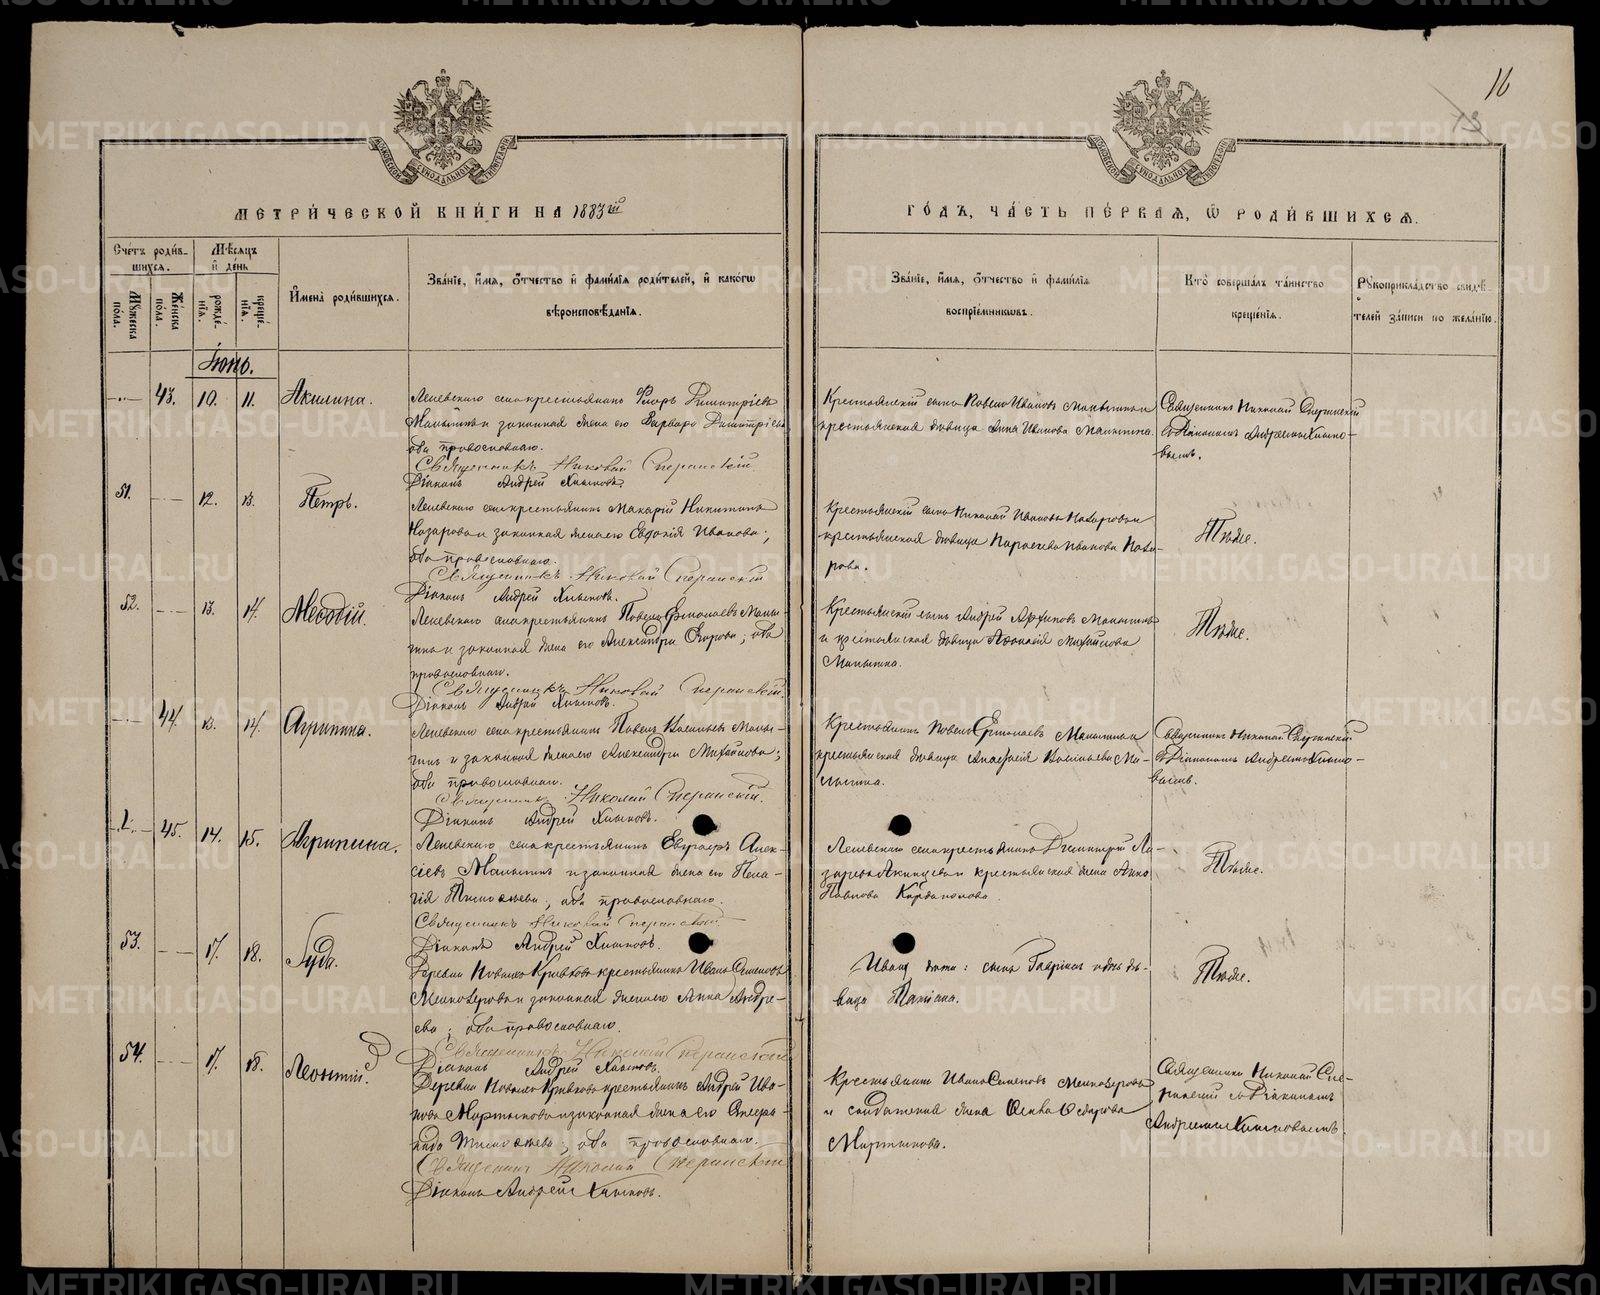 16
13
МОСКОВСКОЙ СѴНОДАЛЬНОЙ ТИПОГРАФІИ
МОСКОВСКОЙ СѴНОДАЛЬНОЙ ТИПОГРАФІИ
МЕТРИ́ЧЕСКОЙ КНИ́ГИ НА 1883ій
ГО́ДЪ, ЧА́СТЬ ПЕ́РВАЯ, Ѿ РОДИ́ВШИХСЯ.
Сче́тъ роди́в-
шихся.
Мꙋ́жеска по́ла.
Же́нска по́ла.
Мѣ́сяцъ и҆ де́нь
рожде́-
нїя.
креще́-
нїя.
И҆мена̀ роди́вшихся.
Зва́нїе, и҆́мя, ѻ҆́тчество и҆ фами́лїя роди́телей, и҆ како́гѡ
вѣроисповѣ́данїя.
Зва́нїе, и҆́мя, ѻ҆́тчество и҆ фами́лїя
воспрїе́мникѡвъ.
Кто̀ соверша́лъ та́инство
креще́нїя.
Рꙋкоприкла́дство свидѣ́-
телей за́писи по жела́нїю.
Іюнь.
43. 10. 11. Акилина.
Лепевскаго села крестьянинъ Флоръ Димитріевъ
Малыгинъ и законная жена его Варвара Димитріева
оба православнаго.
Священникъ Николай Сперанскій
Діаконъ Андрей Хлыновъ.
Крестьянскій сынъ Павелъ Ивановъ Малыгинъ и
крестьянская дѣвица Анна Иванова Малыгина.
Священникъ Николай Сперанскій
съ Діакономъ Андреемъ Хлыно-
вымъ.
51. 12. 13. Петръ.
Лепевскаго села крестьянинъ Макарій Никитинъ
Назаровъ и законная жена его Евдокія Иванова;
оба православнаго.
Священникъ Николай Сперанскій
Діаконъ Андрей Хлыновъ.
Крестьянскій сынъ Николай Ивановъ Назаровъ и
крестьянская дѣвица Параскева Иванова Наза-
рова.
Тѣже.
52. 13. 14. Меѳодій.
Лепевскаго села крестьянинъ Павелъ Ермолаевъ Малы-
гинъ и законная жена его Александра Егорова; оба
православнаго.
Священникъ Николай Сперанскій
Діаконъ Андрей Хлыновъ.
Крестьянскій сынъ Андрей Архиповъ Малыгинъ
и крестьянская дѣвица Михайлова
Малыгина.
Тѣже.
44. 13. 14. Агрипина.
Лепевскаго села крестьянинъ Павелъ Васильевъ Малы-
гинъ и законная жена его Александра Михайлова;
оба православнаго.
Священникъ Николай Сперанскій.
Діаконъ Андрей Хлыновъ.
Крестьянинъ Павелъ Ермолаевъ Малыгинъ и
крестьянская дѣвица Анастасія Васильева Ма-
лыгина.
Священникъ Николай Сперанскій
съ Діакономъ Андреемъ Хлыно-
вымъ.
45. 14. 15. Агрипина.
Лепевскаго села крестьянинъ Евграфъ Алек-
сѣевъ Малыгинъ и законная жена его Пела-
гія Тимоѳеева; оба православнаго.
Священникъ Николай Сперанскій
Діаконъ Андрей Хлыновъ.
Лепевскаго села крестьянинъ Димитрій Ла-
заревъ и крестьянская жена Анна
Павлова
Тѣже.
53. 17. 18. Іуда.
Деревни крестьянинъ Иванъ Семеновъ
Мелкозеровъ и законная жена его Анна Андре-
ева; оба православнаго.
Священникъ Николай Сперанскій
Діаконъ Андрей Хлыновъ.
Ивана дѣти: сынъ Гавріилъ и дочь дѣ-
вица Татіана.
Тѣже.
54. 17. 18. Леонтій.
Деревни крестьянинъ Андрей Ива-
новъ Мартыновъ и законная жена его
Тимоѳеева; оба православнаго.
Священникъ Николай Сперанскій
Діаконъ Андрей Хлыновъ.
Крестьянинъ Иванъ Семеновъ Мелкозеровъ
и солдатская жена Ѳедорова
Мартынова.
Священникъ Николай Спе-
ранскій съ Діакономъ
Андреемъ Хлыновымъ.
METRIKI.GASO-URAL.RU